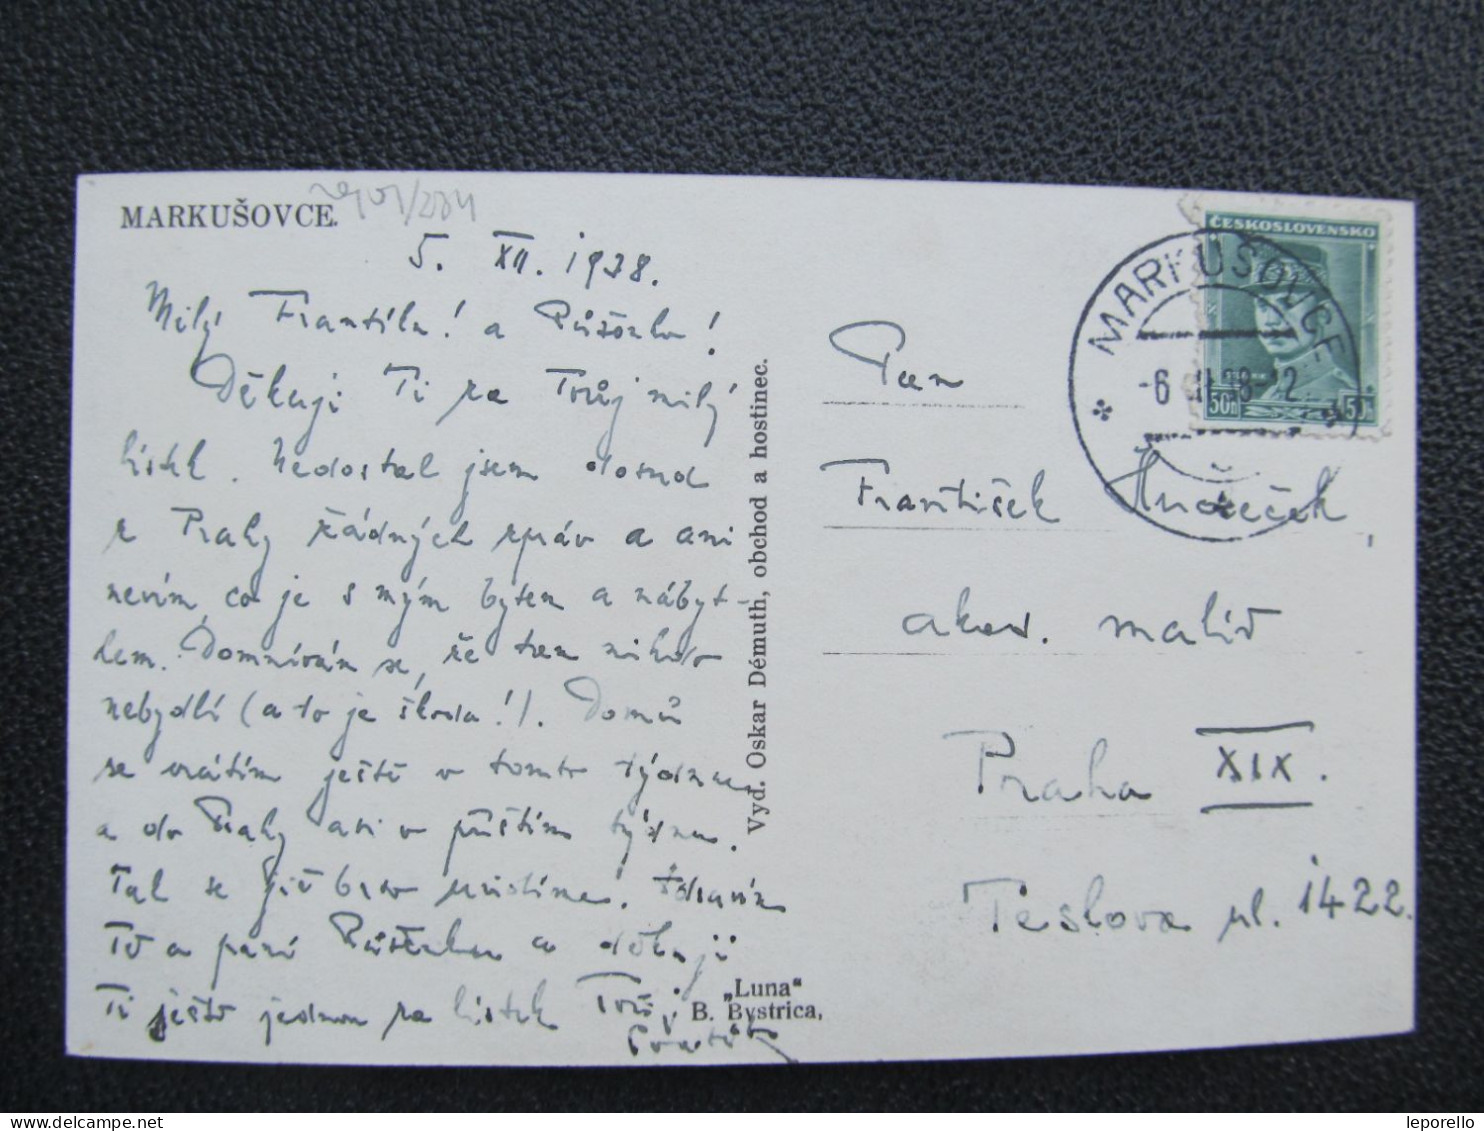 MARKUŠOVCE.
5. XII. 1938.
Milý Frantíku! a
Děkuji Ti za Tvůj milý
lístek. Nedostal jsem dosud
z Prahy řádných zpráv a ani
nevím, co je s mým bytem a nábyt-
kem. Domnívám se, že tam nikdo
nebydlí (a to je škoda!). Domů
se vrátím ještě v tomto týdnu
a do Prahy asi v příštím týdnu.
Tak se již brzo uvidíme. Zdravím
Tě a paní a děkuji
Ti ještě jednou za lístek Tvůj
Vyd. Oskar Démuth, obchod a hostinec.
„Luna"
B. Bystrica,
ČESKOSLOVENSKO
50h 50h
MARKUŠOVCE
Pan
František
akad. malíř
Praha XIX.
Teslova ul. 1422.
leporello